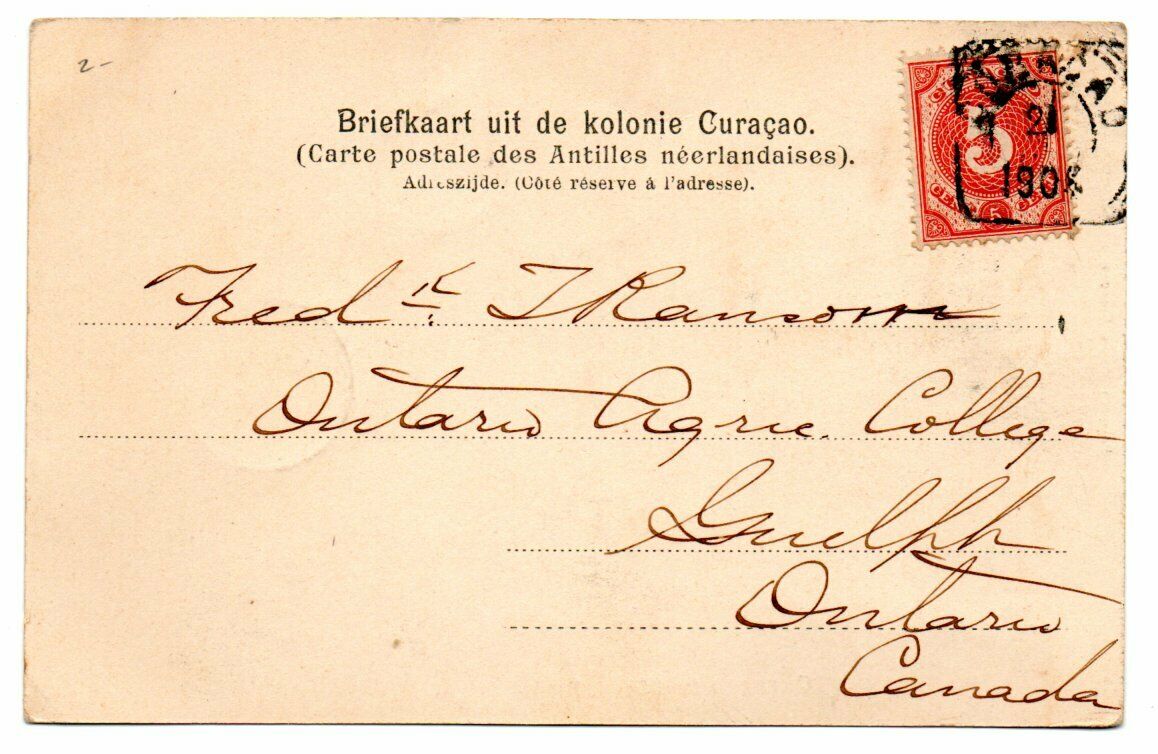 2-
Briefkaart uit de kolonie Curaçao.
(Carte postale des Antilles néerlandaises).
Adreszijde. (Côté réservé à l'adresse).
5
CENT 5 CENT
2
190
Fredk. T Ransom
Ontario Agric. College
Guelph
Ontario
Canada